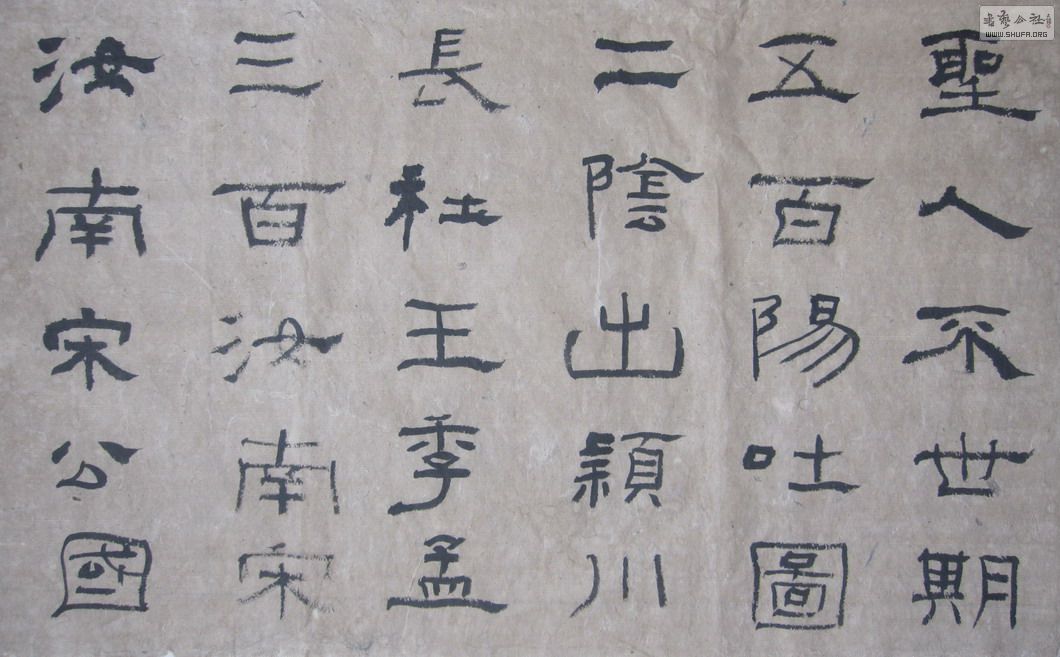 聖人不世期
五百陽吐圖
二陰出穎川
長社王季孟
三百汝南宋
汝南宋公國
WWW.SHUFA.ORG